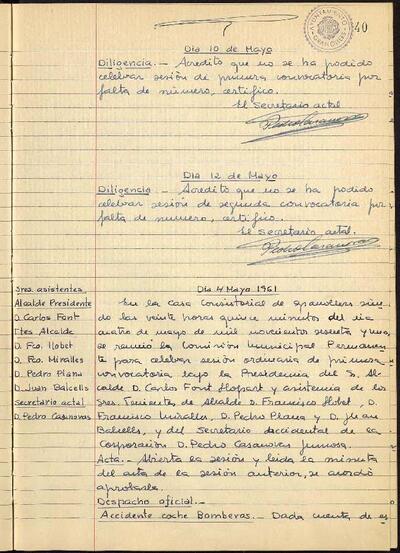 40
AYUNTAMIENTO
GRANOLLERS
Dia 10 de Mayo
Diligencia.- Acredito que no se ha podido
celebrar sesión de primera convocatoria por
falta de número, certifico.
El secretario actal
Pedro Casanovas
DIA 12 de Mayo
Diligencia - Acredito que no se ha podido
celebrar sesión de segunda convocatoria por
falta de numero, certifico.
El secretario actal.
Pedro Casanovas
Sres. asistentes
Alcalde Presidente
D. Carlos Font
Ttes Alcalde
D. Fco. Llobet
D. Fco. Miralles
D. Pedro Plana
D. Juan Balcells
Secretario actal
D. Pedro Casanovas
Dia 4 Mayo 1961
En la Casa Consistorial de Granollers sien
do las veinte horas quince minutos del dia
cuatro de mayo de mil novecientos sesenta y uno,
se reunió la Comisión Municipal Permanen
te para celebrar sesión ordinaria de primera
convocatoria bajo la Presidencia del S. Al
calde D. Carlos Font Llopart y asistencia de los
Sres. Tenientes de Alcalde D. Francisco Llobet, D.
Francisco Miralles, D. Pedro Plana y D. Juan
Balcells, y del Secretario accidental de la
Corporación D. Pedro Casanovas
Acta.- Abierta la sesión y leida la minuta
del acta de la sesión anterior, se acordó
aprobarla.
Despacho oficial.-
Accidente coche Bomberos.- Dada cuenta de es